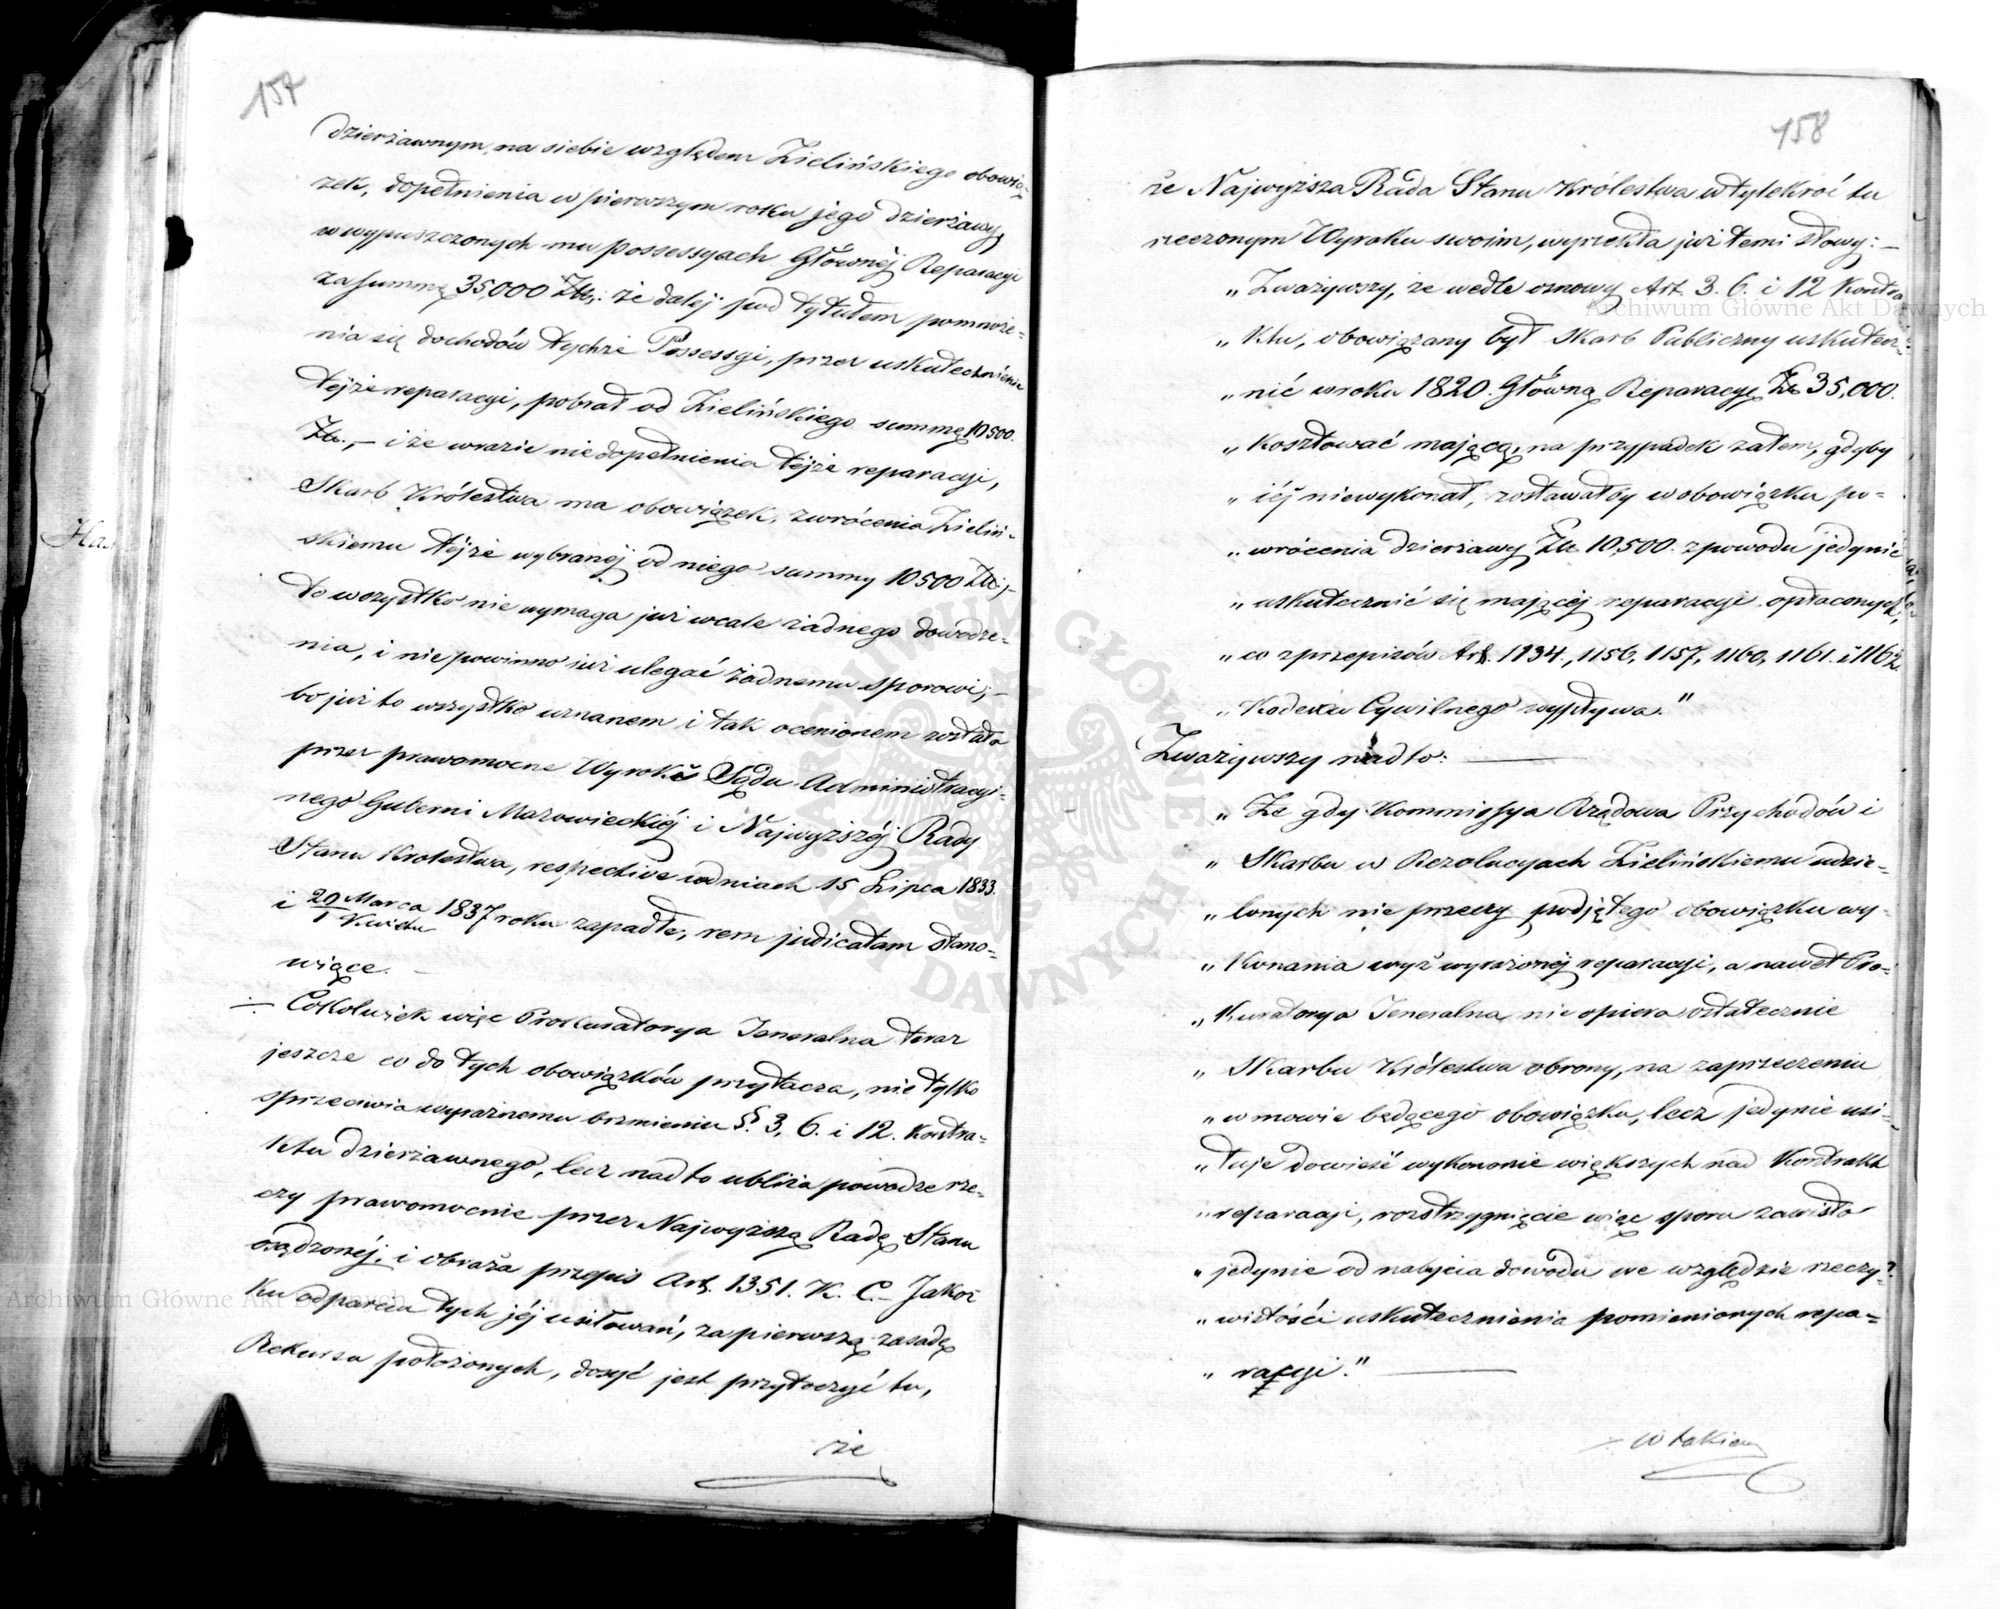 157
dzierżawnym, na siebie względem Zielińskiego obowią-
zek, dopełnienia w pierwszym roku jego dzierżawy,
w wypuszczonych mu possessyach Głównej Reparacyi
za summę 35,000 Złt: że dalej pod tytułem pomnoże-
nia się dochodów tychże Possessyi, przez uskutecznienie
tejże reparacyi, pobrał od Zielińskiego summę 10500.
Złt., – i że w razie niedopełnienia tejże reparacyi,
Skarb Królestwa ma obowiązek, zwrócenia Zieliń-
skiemu tejże wybranéj od niego summy 10500 Złt; –
to wszystko nie wymaga już wcale żadnego dowodze-
nia, i nie powinno już ulegać żadnemu sporowi; –
bo już to wszystko uznanem i tak ocenionem zostało
przez prawomocne Wyroki Sądu Administracyi-
nego Gubernii Mazowieckiéj i Najwyższéj Rady
Stanu Krolestwa, respective w dniach 15 Lipca 1833.
i 20 Marca / 1 Kwietn 1837 roku zapadłe, rem judicatam stano-
wiące. –
÷ Cokolwiek więc Prokuratorya Jeneralna teraz
jeszcze co do tych obowiązków przytacza, nie tylko
sprzeciwia wyraźnemu brzmieniu §. 3, 6. i 12. Kontra-
ktu dzierżawnego, lecz nadto ubliża powadze rze-
czy prawomocnie przez Najwyższą Radę Stanu
osądzonéj, i obraża przepis Art. 1351. K. C. – Jakoż
ku odparciu tych jéj usiłowań, za pierwszą zasadę
Rekursu położonych, dosyć jest przytoczyć tu,
że
158
że Najwyższa Rada Stanu Królestwa w tylekroć tu
rzeczonym Wyroku swoim, wyrzekła już temi słowy: –
„ Zważywszy, że wedle osnowy Art. 3. 6. i 12 Kontra
„ Ktu, obowiązany był Skarb Publiczny uskutecz-
„ nić w roku 1820. Główną Reparacyę Złt 35,000.
„ Kosztować mającą, na przypadek zatem, gdyby
„ iéj niewykonał, zostawałby w obowiązku po-
„ wrócenia dzierżawy Złt. 10,500. z powodu jedynie
„ uskutecznić się mającéj reparacyi opłaconych,
„ co z przepisów Art. 1134., 1156, 1157, 1160, 1161. i 1162.
„ Kodexu Cywilnego wypływa."
Zważywszy nadto:
„ Że gdy Kommissya Rządowa Przychodów i
„ Skarbu w Rezolucyach Zielińskiemu udzie-
„ lonych nie przeczy podjętego obowiązku wy-
„ Konania wyż wyrażonéj reparacyi, a nawet Pro-
„ Kuratorya Jeneralna nie opiera ostatecznie
„ Skarbu Królestwa obrony, na zaprzeczeniu
„ w mowie będącego obowiązku, lecz jedynie usi-
„ łuje dowieść wykonanie większych nad Kontrakt
„ reparacyi, rozstrzygnięcie więc sporu zawisło
„ jedynie od nabycia dowodu, we względzie rzeczy-
„ wistości uskutecznienia pomienionych repa=
„ racyi."
÷ W takiem